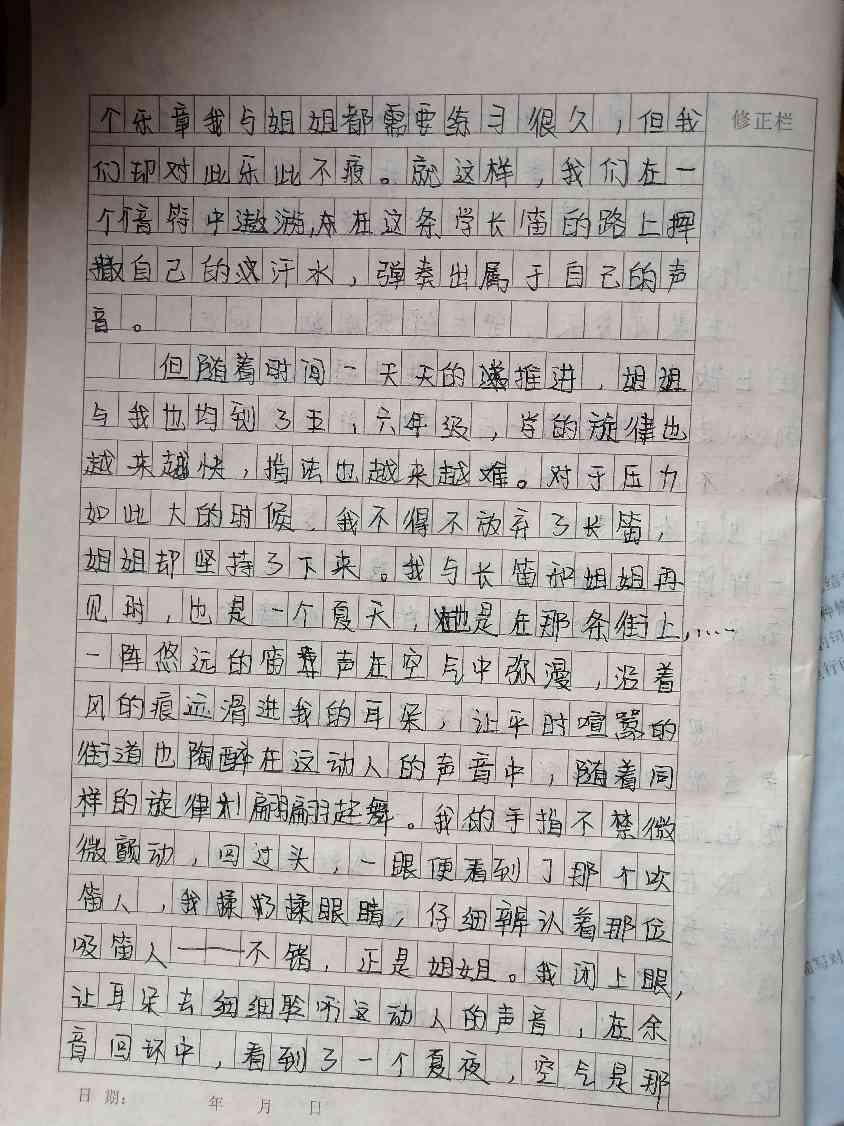 个乐章我与姐姐都需要练习很久，但我
修正栏
们却对此乐此不疲。就这样，我们在一
个个音符中遨游，在这条学长笛的路上挥
撒自己的汗水，弹奏出属于自己的声
音。
但随着时间一天天的推进，姐姐
与我也均到了五，六年级，学的旋律也
越来越快，指法也越来越难。对于压力
如此大的时候，我不得不放弃了长笛，
姐姐却坚持了下来。我与长笛和姐姐再
见时，也是一个夏天，也是在那条街上，……
一阵悠远的笛声在空气中弥漫，沿着
风的痕迹滑进我的耳朵，让平时喧嚣的
街道也陶醉在这动人的声音中，随着同
样的旋律翩翩起舞。我的手指不禁微
微颤动，回过头，一眼便看到了那个吹
笛人，我揉揉眼睛，仔细辨认着那位
吸笛人——不错，正是姐姐。我闭上眼，
让耳朵去细细聆听这动人的声音，在余
音回环中，看到了一个夏夜，空气是那
日期： 年 月 日